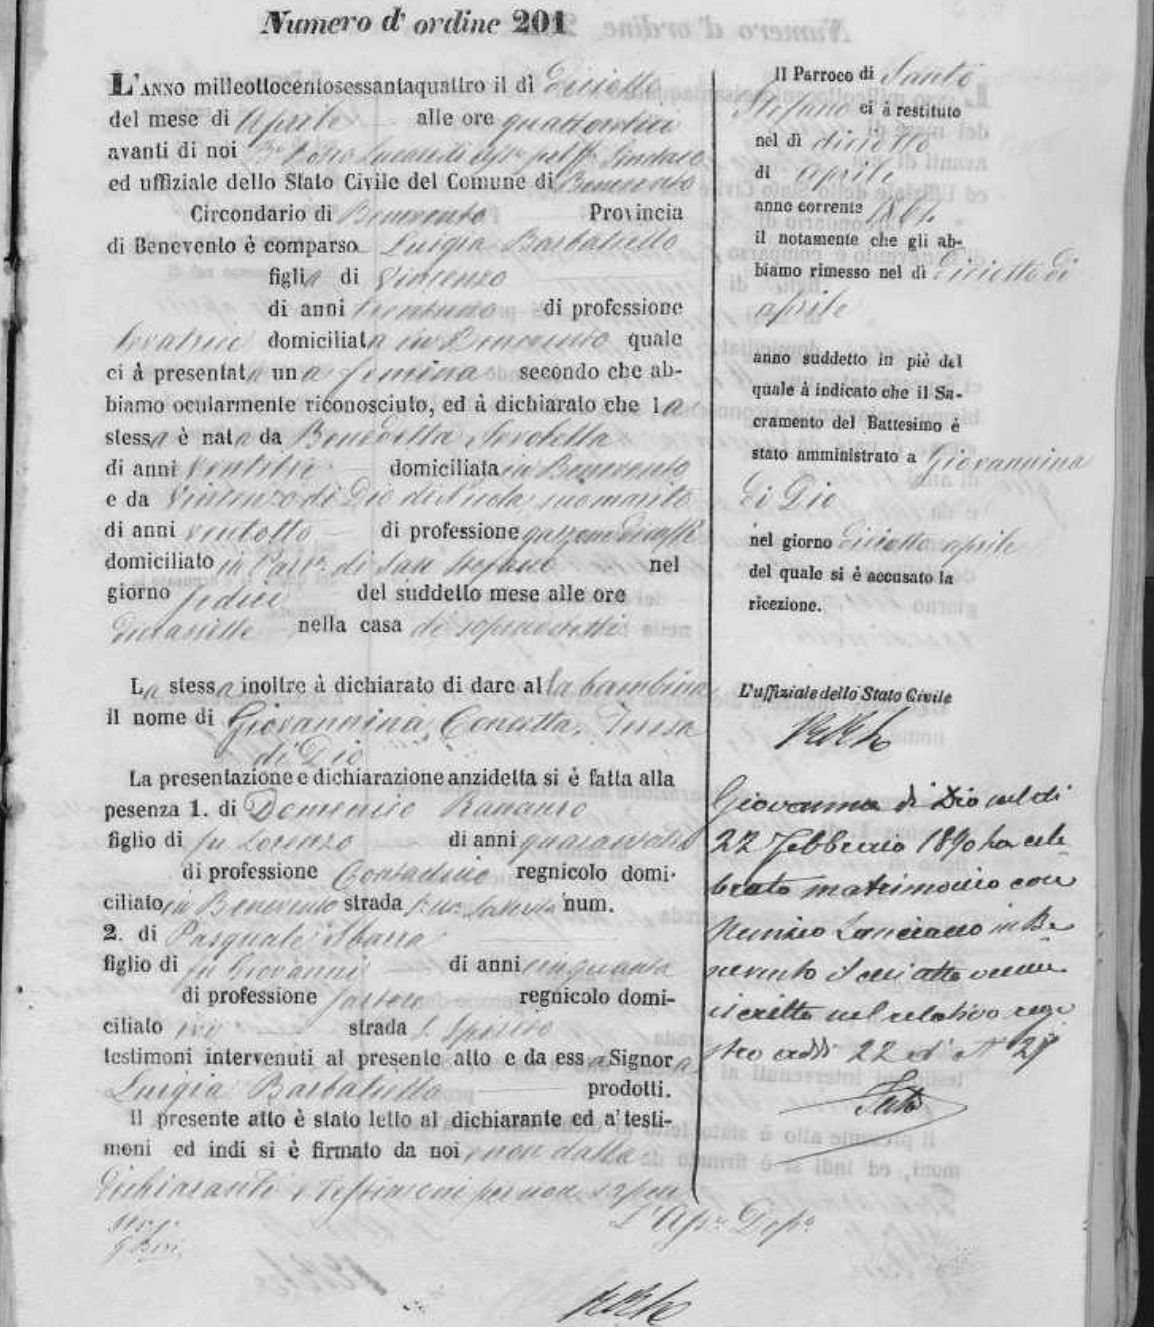 Numero d' ordine 201
L'ANNO milleottocentosessantaquattro il dì dieciotto
del mese di Aprile alle ore quattordici
avanti di noi
ed uffiziale dello Stato Civile del Comune di Benevento
Circondario di Benevento Provincia
di Benevento è comparso Luigia Barbatiello
figlia di Vincenzo
di anni di professione
levatrice domiciliata in Benevento quale
ci à presentata una femina secondo che ab-
biamo ocularmente riconosciuto, ed à dichiarato che la
stessa è nata da Benedetta
di anni ventitre domiciliata in Benevento
e da Vincenzo di Dio di Nicola suo marito
di anni ventotto di professione
domiciliato in Parr.a di San Stefano nel
giorno sedici del suddetto mese alle ore
diciassette nella casa di sopradetti
La stessa inoltre à dichiarato di dare alla bambina
il nome di Giovannina, Concetta, Teresa
di Dio
La presentazione e dichiarazione anzidetta si è fatta alla
pesenza 1. di Domenico
figlio di fu Lorenzo di anni
di professione Contadino regnicolo domi-
ciliato in Benevento strada num.
2. di Pasquale
figlio di fu Giovanni di anni cinquanta
di professione Sartore regnicolo domi-
ciliato ivi strada S. Spirito
testimoni intervenuti al presente atto e da essa Signora
Luigia Barbatiello prodotti.
Il presente atto è stato letto al dichiarante ed a' testi-
moni ed indi si è firmato da noi e non dalla
dichiarante e testimoni per non sapere
Il Parroco di Santo
Stefano ci à restituto
nel dì dieciotto
di aprile
anno corrente 1864
il notamente che gli ab-
biamo rimesso nel dì dieciotto di
aprile
anno suddetto in piè del
quale à indicato che il Sa-
cramento del Battesimo è
stato amministrato a Giovannina
di Dio
nel giorno dieciotto aprile
del quale si è accusato la
ricezione.
L'uffiziale dello Stato Civile
Giovanna di Dio nel dì
22 Febbraio 1890 ha cele
brato matrimonio con
Nunzio in Be
nevento il cui atto venne
iscritto nel relativo regi
stro addì 22 d° N 27